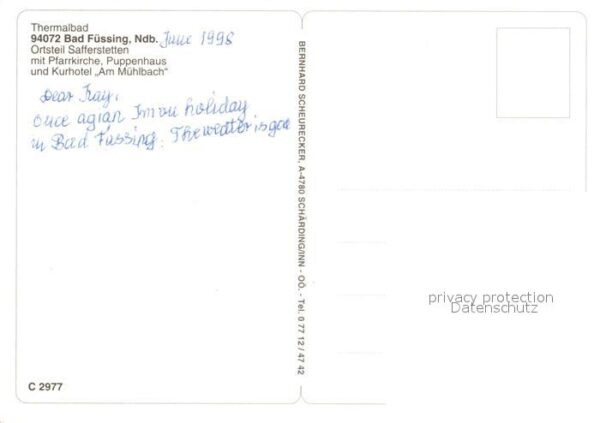 Thermalbad
94072 Bad Füssing, Ndb. June 1998
Ortsteil Safferstetten
mit Pfarrkirche, Puppenhaus
und Kurhotel „Am Mühlbach“
Dear Kay,
once agian I'm on holiday
in Bad Füssing. The wetter is goo
BERNHARD SCHEURECKER, A-4780 SCHÄRDING/INN - OÖ. - Tel. 0 77 12 / 47 42
privacy protection
Datenschutz
C 2977